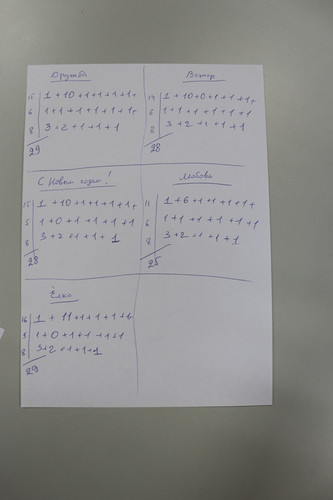 Дружба
15 1 + 10 + 1 + 1 + 1 + 1 +
6 1 + 1 + 1 + 1 + 1 + 1 +
8 3 + 2 + 1 + 1 + 1
29
Ветер
14 1 + 10 + 0 + 1 + 1 + 1 +
6 1 + 1 + 1 + 1 + 1 + 1
8 3 + 2 + 1 + 1 + 1
28
С Новым годом!
15 1 + 10 + 1 + 1 + 1 + 1 +
5 1 + 0 + 1 + 1 + 1 + 1
8 3 + 2 + 1 + 1 + 1
28
Любовь
11 1 + 6 + 1 + 1 + 1 + 1 +
6 1 + 1 + 1 + 1 + 1 + 1
8 3 + 2 + 1 + 1 + 1
25
Ёлка
16 1 + 11 + 1 + 1 + 1 + 1 +
5 1 + 0 + 1 + 1 + 1 + 1
8 3 + 2 + 1 + 1 + 1
29